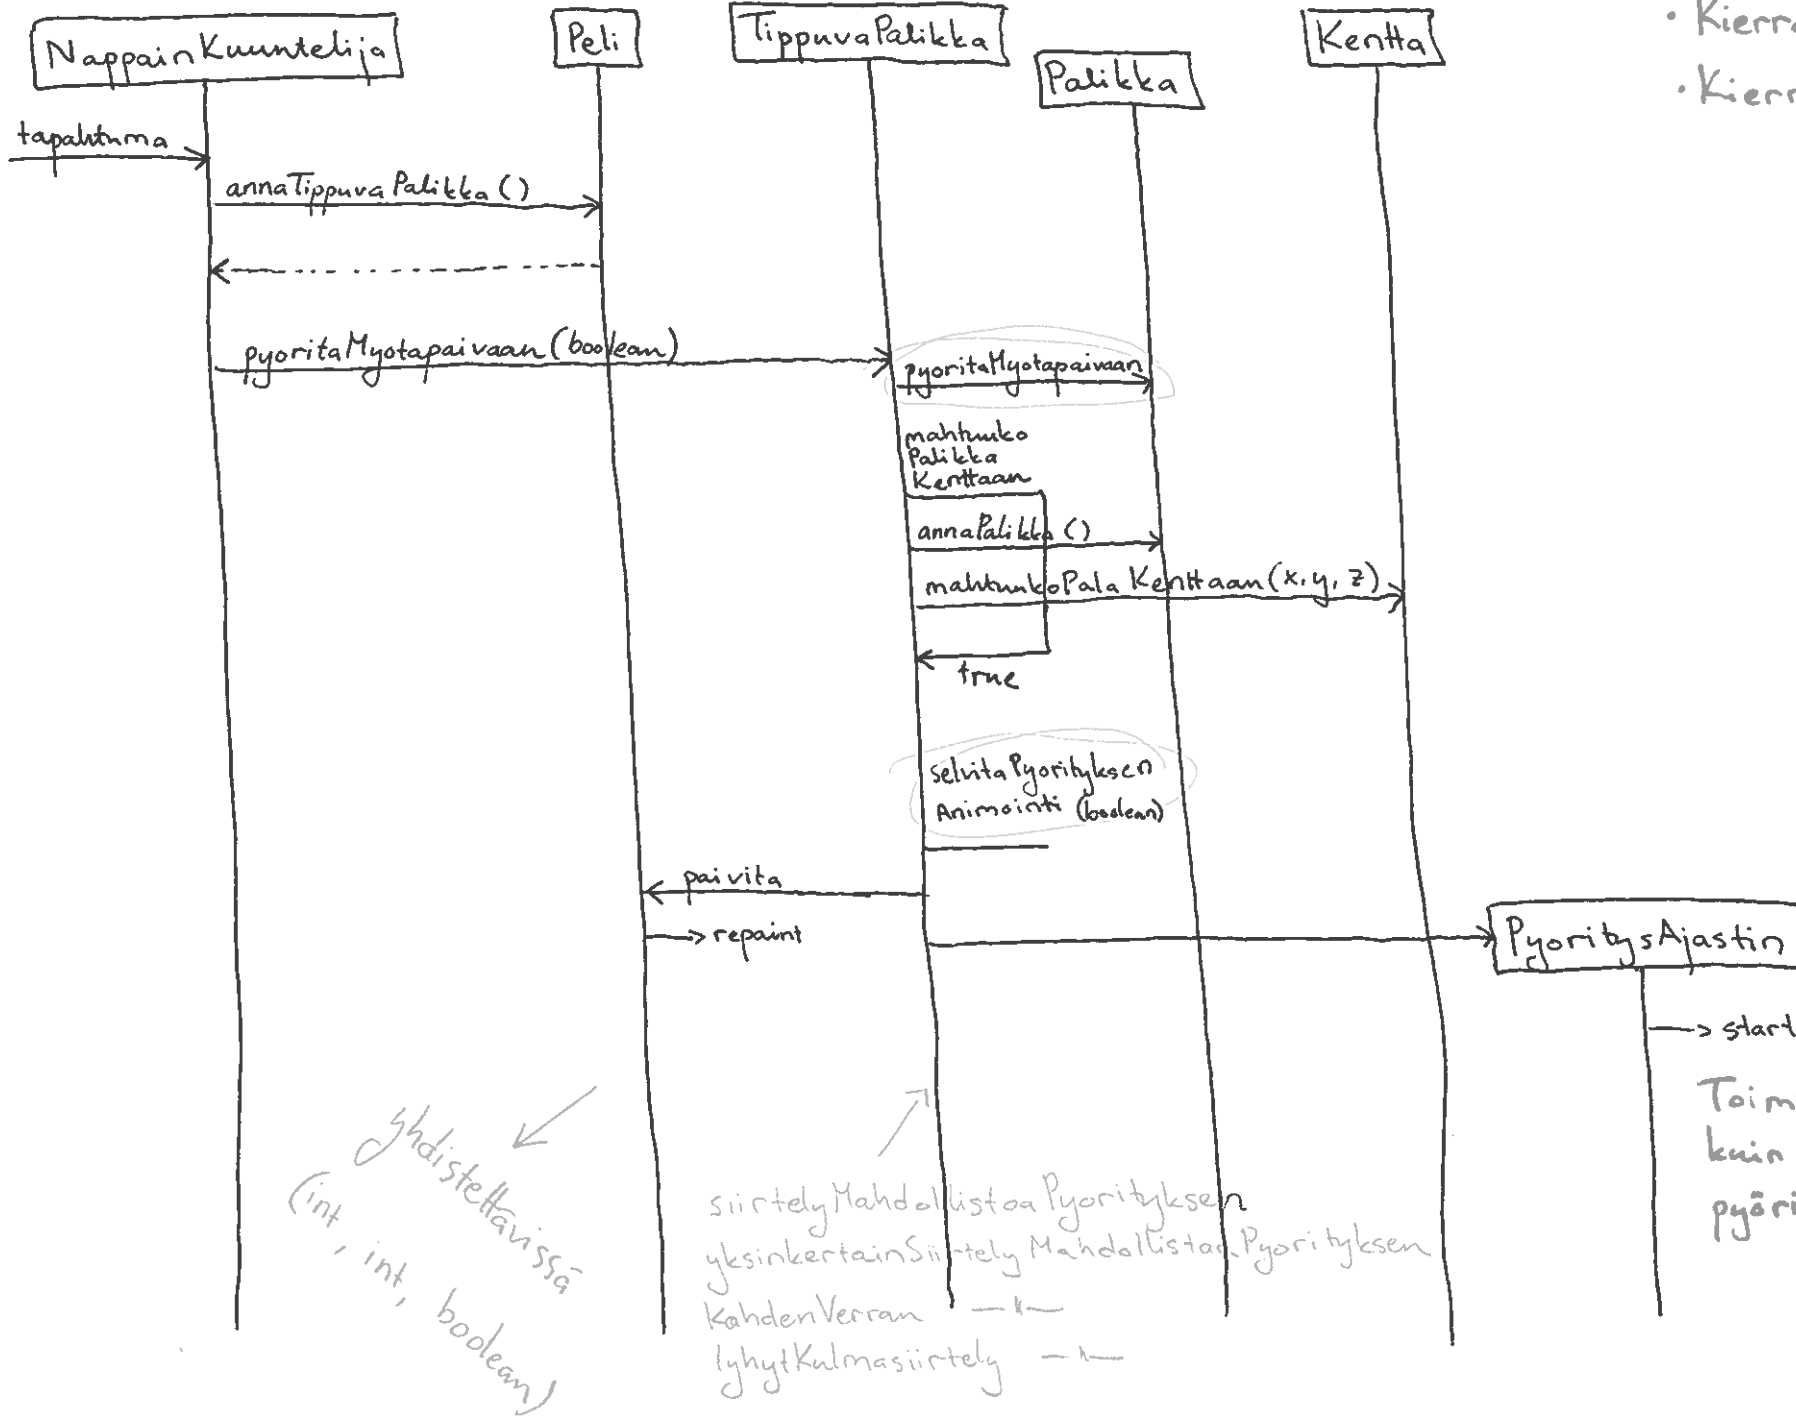 NappainKuuntelija
Peli
TippuvaPalikka
Palikka
Kentta
• Kierr
• Kierr
tapahtuma
annaTippuvaPalikka()
pyoritaMyotapaivaan(boolean)
pyoritaMyotapaivaan
mahtuuko
Palikka
Kenttaan
annaPalikka()
mahtuukoPalaKenttaan(x, y, z)
true
selvitaPyorityksen
Animointi (boolean)
paivita
repaint
PyoritysAjastin
start
Toim
kuin
pyöri
yhdistettävissä
(int, int, boolean)
siirtelyMahdollistaaPyorityksen
yksinkertainSiirtelyMahdollistaaPyorityksen
KahdenVerran —"—
lyhytKulmasiirtely —"—